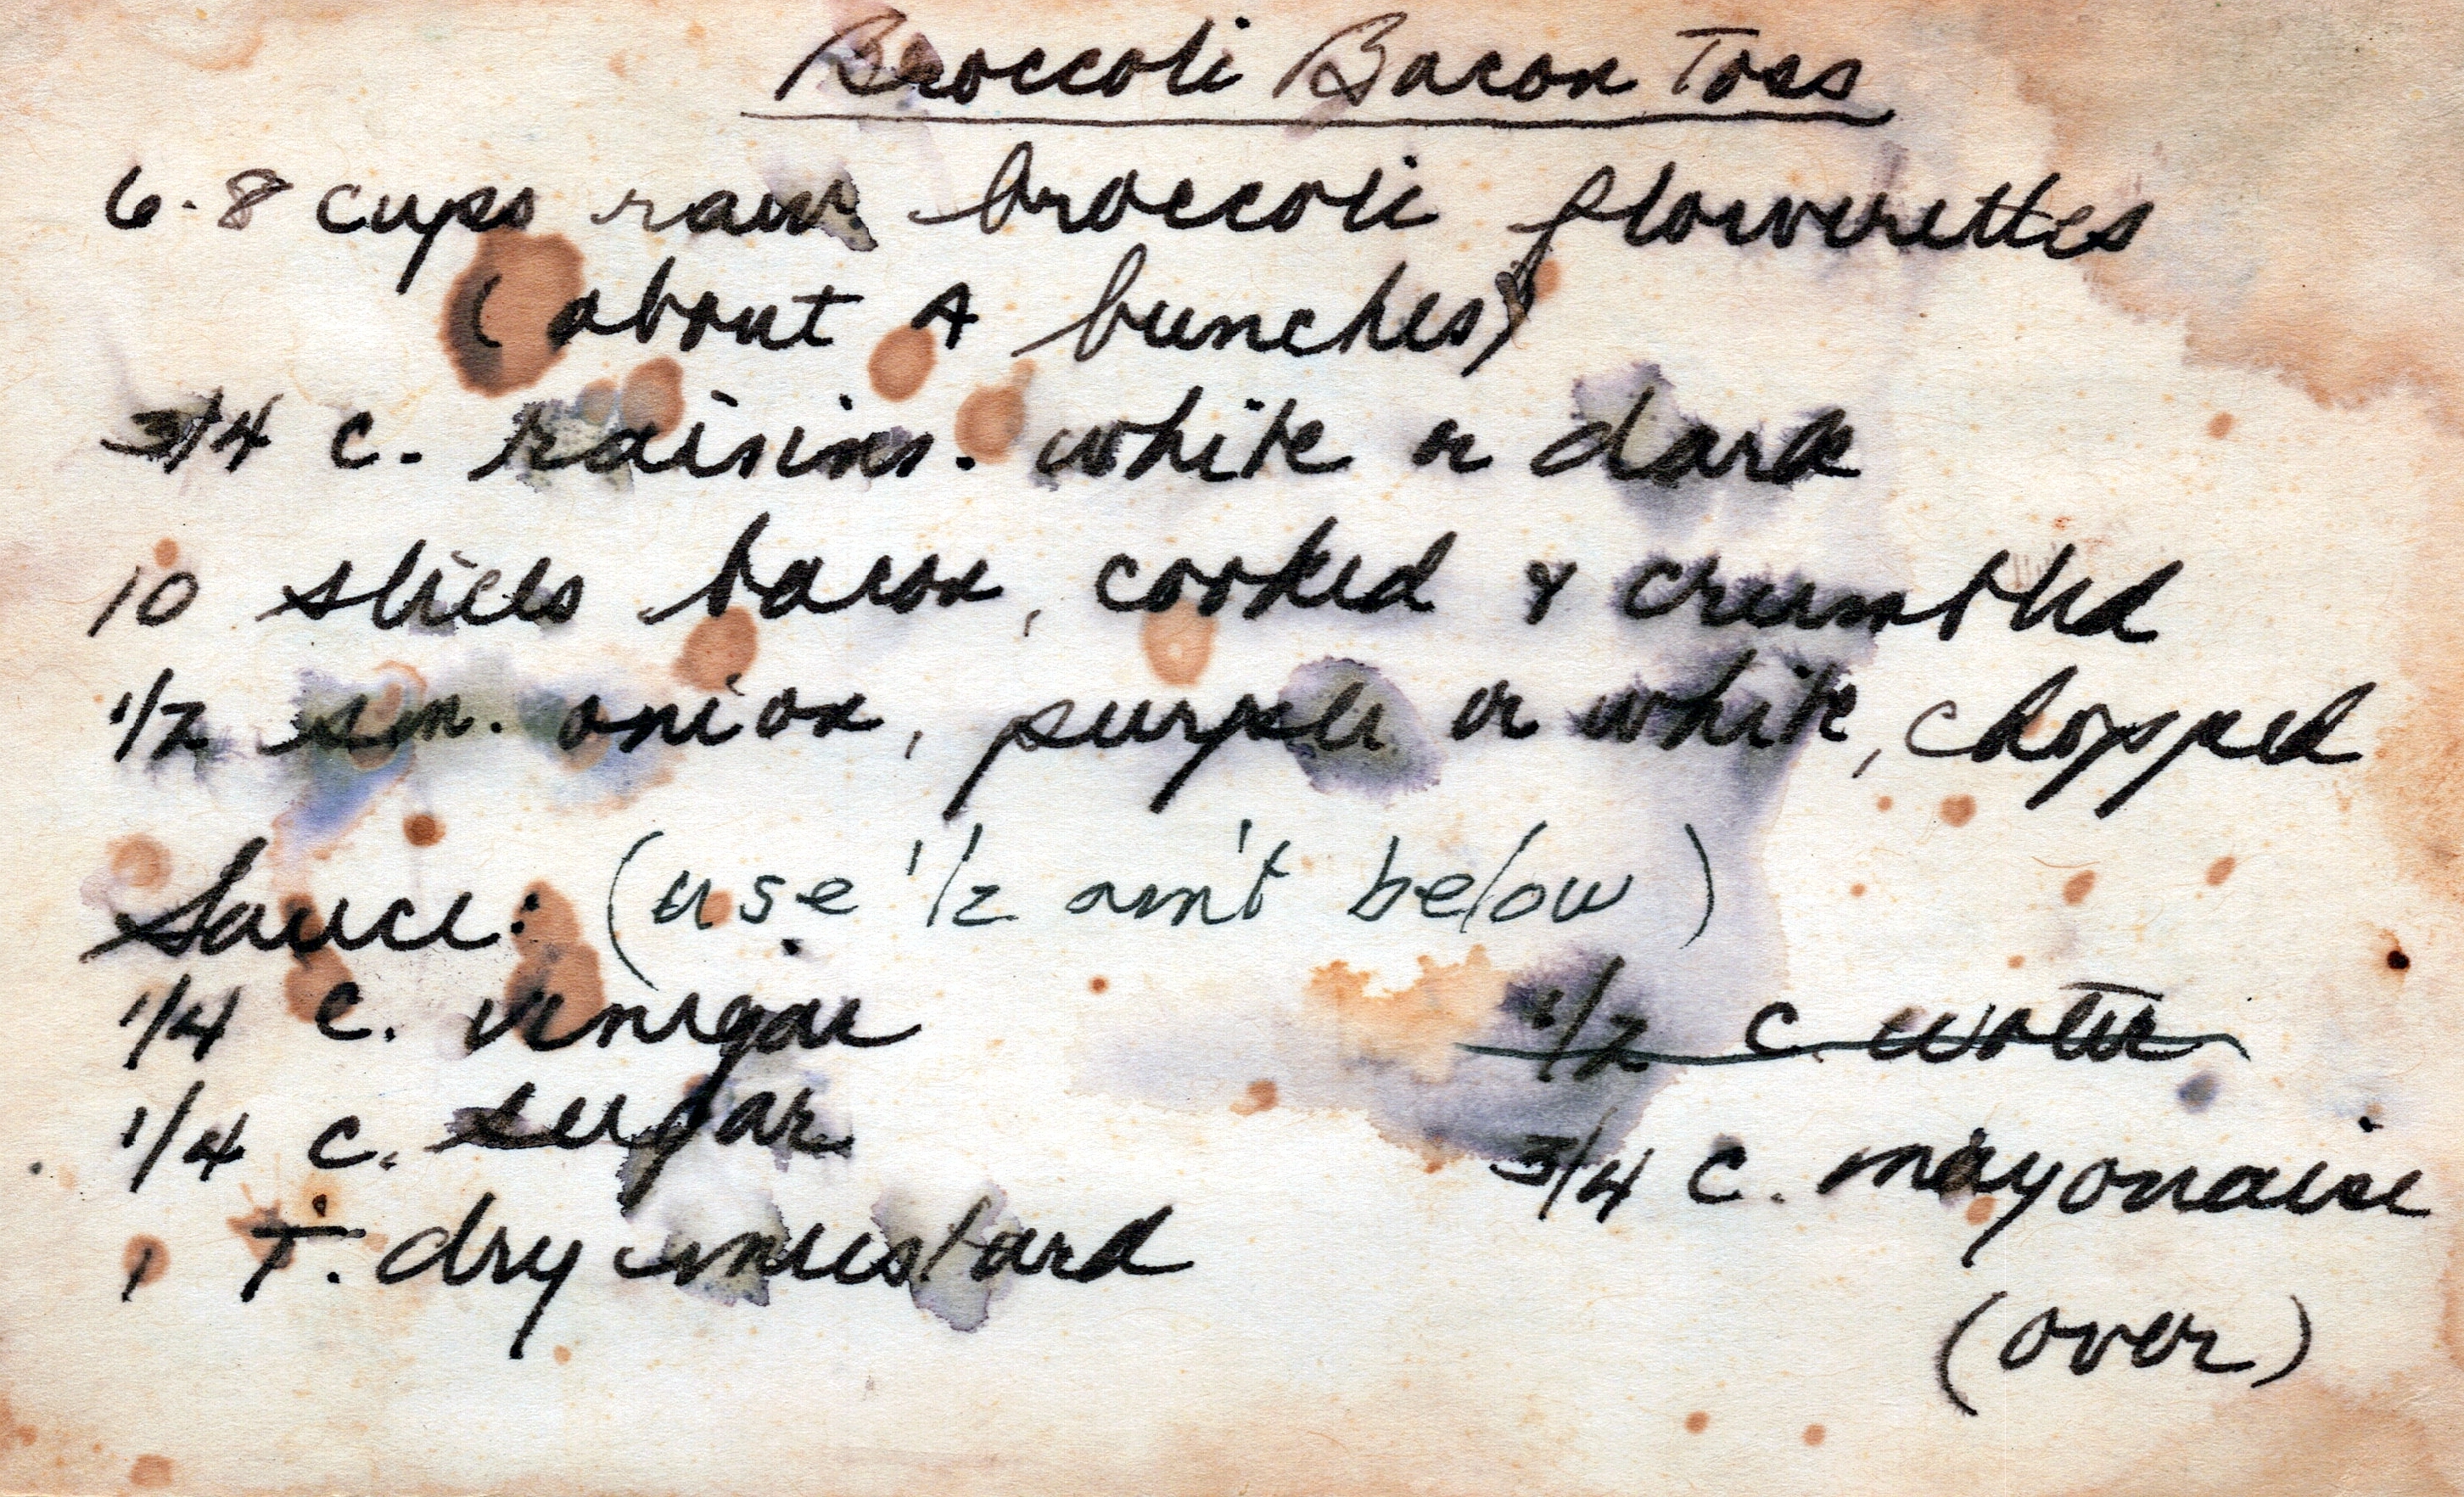 Broccoli Bacon Toss
6-8 cups raw broccoli flowerettes
(about 4 bunches)
3/4 c. raisins. white or dark
10 slices bacon, cooked & crumbled
1/2 sm. onion, purple or white, chopped
Sauce: (use 1/2 am't below)
1/4 c. vinegar
1/2 c. water
1/4 c. sugar
3/4 c. mayonaise
1 T. dry mustard
(over)